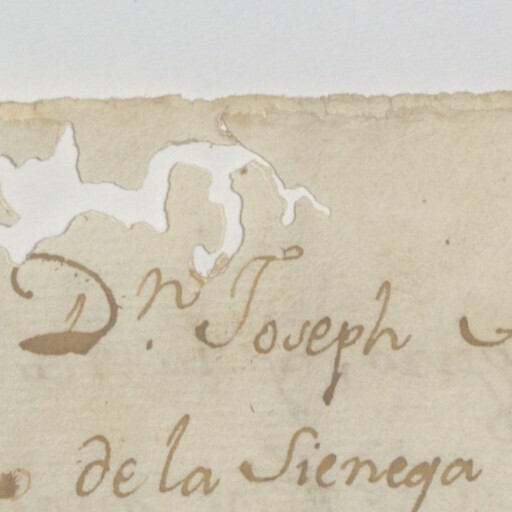 D.n Joseph
de la Sienega